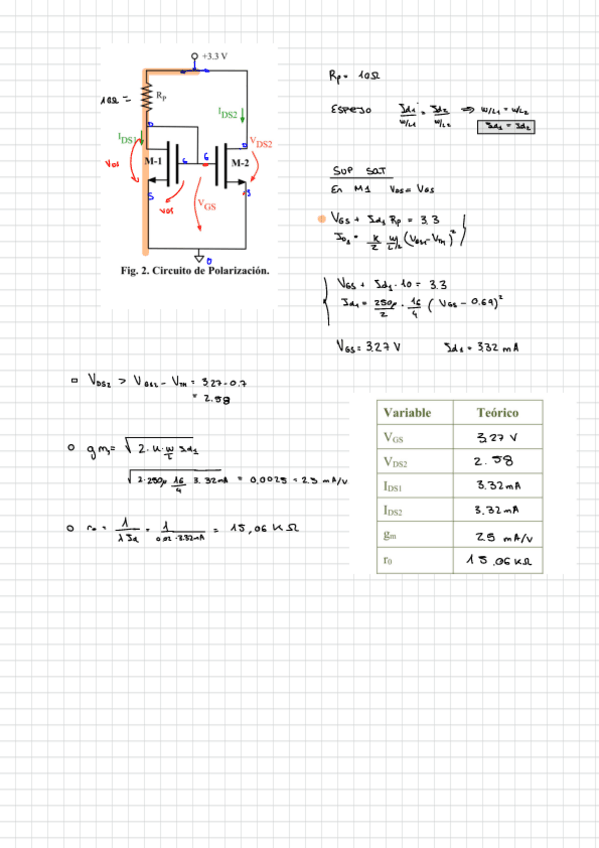 +3.3 V
10Ω =
RP
IDS2
IDS1
VDS2
VDS
M-1
G
G
M-2
S
S
VDS
VGS
0
Fig. 2. Circuito de Polarización.
Rp = 10Ω
ESPEJO Id1 / W/L1 = Id2 / W/L2 ⇒ W/L1 = W/L2
Id1 = Id2
SUP SAT
En M1 VDS = VGS
VGS + Id1 Rp = 3.3
ID1 = K/2 W/L (VGS1 - VTH)²
VGS + Id1 · 10 = 3.3
Id1 = 250μ/2 · 16/4 (VGS - 0.69)²
VGS = 3.27 V Id1 = 3.32 mA
VDS2 > VGS2 - VTH = 3.27 - 0.7
= 2.58
gm = √2 · K · W/L Id1
√2 · 250μ 16/4 3.32mA = 0,0025 = 2.5 mA/V
ro = 1 / λ Id = 1 / 0.02 · 3.32mA = 15,06 KΩ
Variable Teórico
VGS 3,27 V
VDS2 2.58
IDS1 3.32 mA
IDS2 3.32 mA
gm 2.5 mA/V
r0 15.06 KΩ